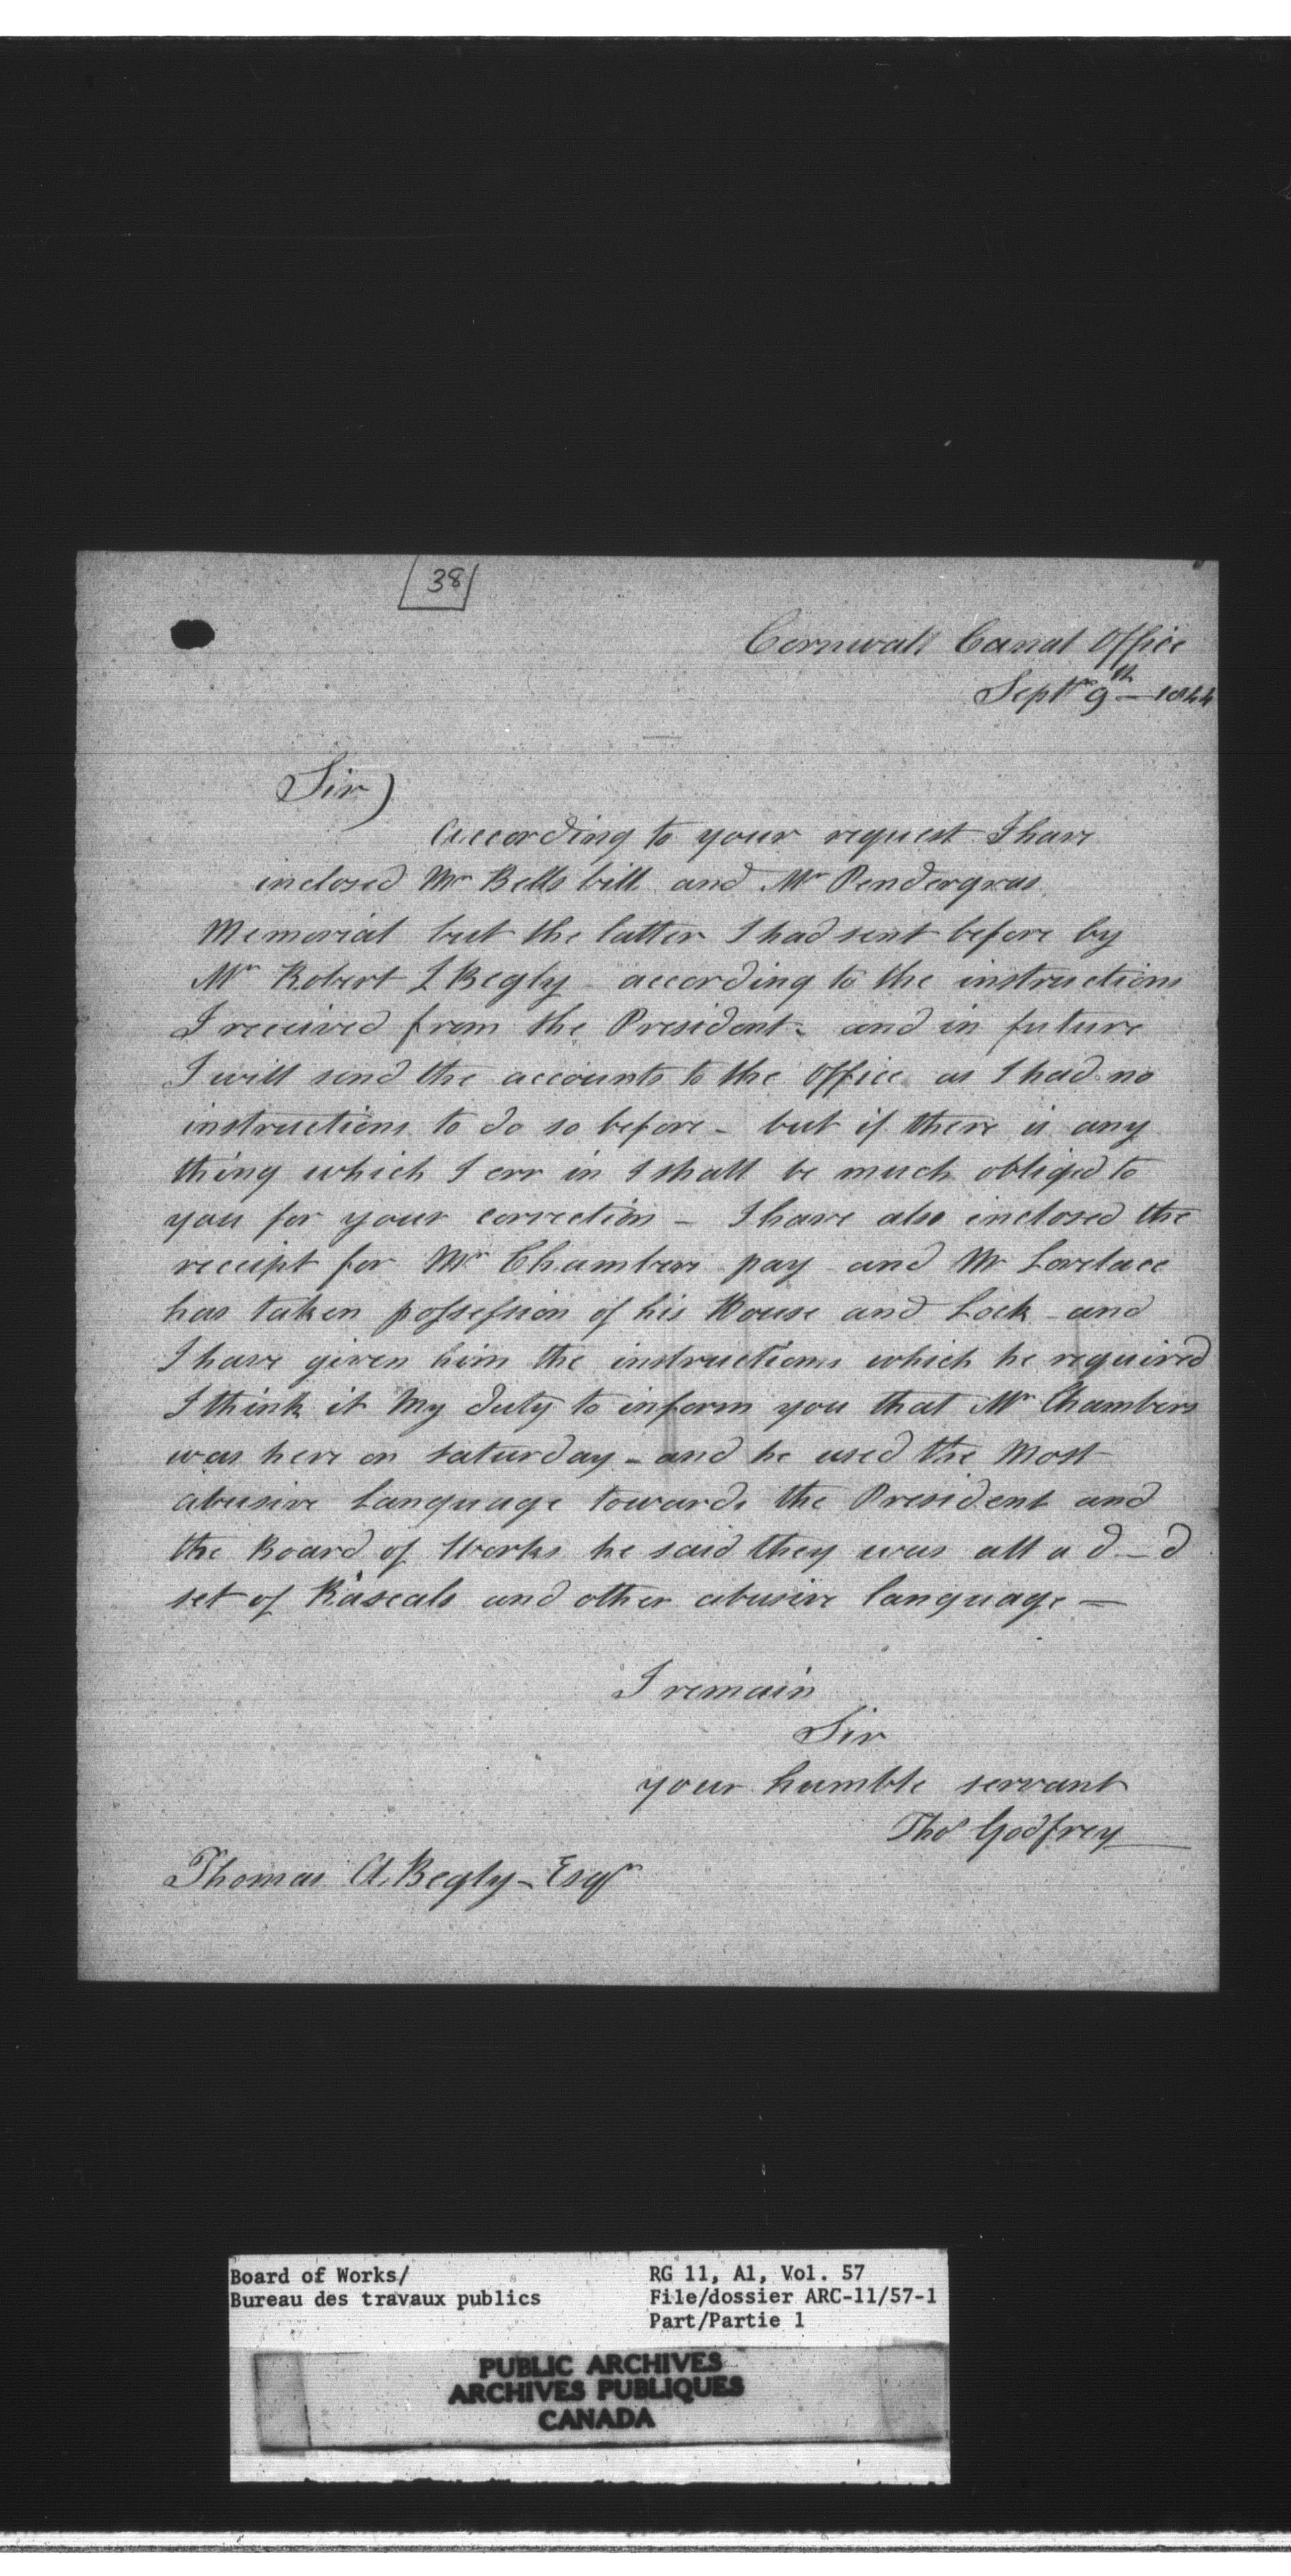 38
Cornwall Canal Office
Septr 9th — 1844
Sir)
According to your request I have
inclosed Mr Bells bill and Mr Pendergras
Memorial but the latter I had sent before by
Mr Robert L Begly according to the instructions
I received from the President - and in future
I will send the accounts to the Office as I had no
instructions to do so before - but if there is any
thing which I err in I shall be much obliged to
you for your correction - I have also inclosed the
receipt for Mr Chambers pay and Mr Lovelace
has taken possession of his House and Lock and
I have given him the instructions which he required
I think it My duty to inform you that Mr Chambers
was here on Saturday - and he used the Most
abusive Language towards the President and
the Board of Works he said they was all a d—d
set of Rascals and other abusive language —
I remain
Sir
your humble servant
Thos Godfrey
Thomas A. Begly - Esqr
Board of Works/
Bureau des travaux publics
RG 11, A1, Vol. 57
File/dossier ARC-11/57-1
Part/Partie 1
PUBLIC ARCHIVES
ARCHIVES PUBLIQUES
CANADA